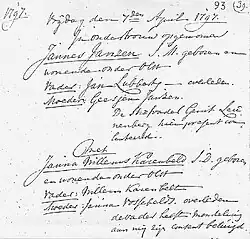 1797.
93
39.
Vrijdag den 7den April 1797.
In ondertrouw opgenomen
Jannes Janzen J.M. geboren en
wonende onder Olst
Vader: Jan Lubberts overleden.
Moeder: Geesjen Janzen.
De Stafvoudel Gerrit
hier present con
senteerde.
Met
Janna Willems Karenbeld J.D. geboren
en wonende onder Olst
Vader: Willem Karenbelt
Moeder: Janna overleden
de vader heeft mondeling
aan mij zijn consent betuigd.